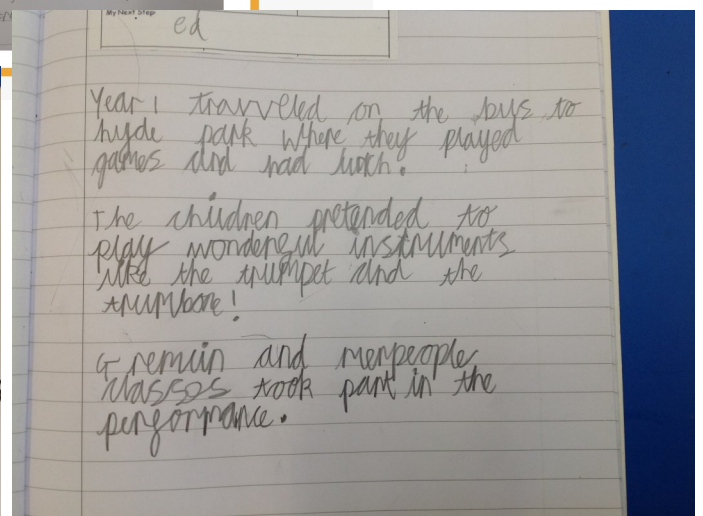 My Next Steps
ed
Year 1 travveled on the bus to
hyde park where they played
games and had lunch.
The children pretended to
play wonderful instruments
like the trumpet and the
trumbone!
Gremlin and merpeople
classes took part in the
performance.